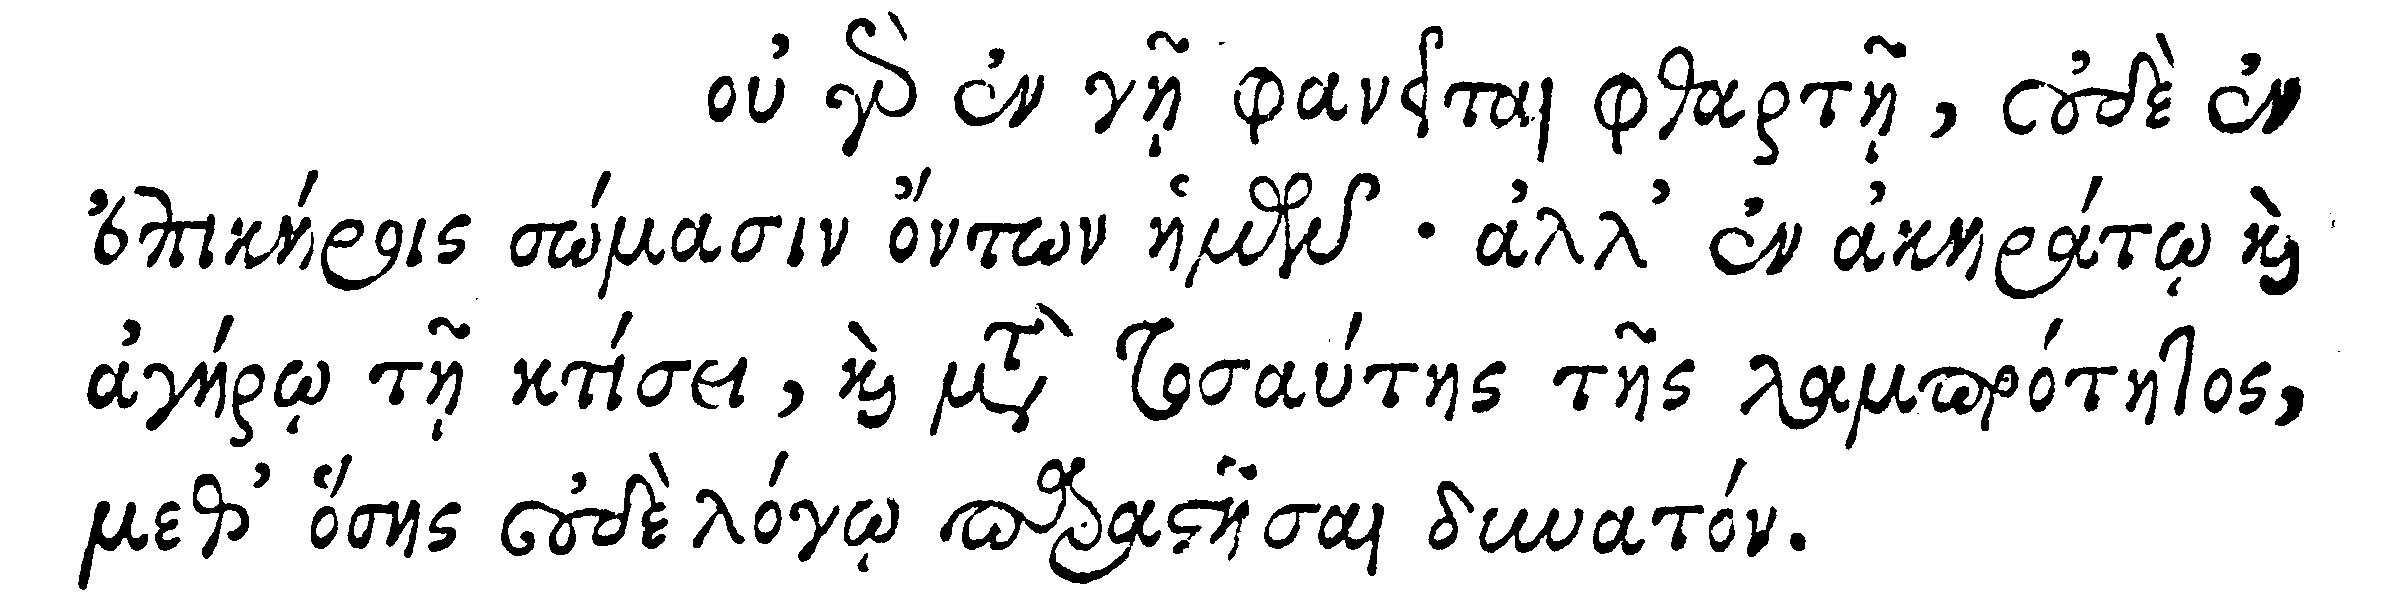 οὐ γὰρ ἐν γῇ φανεῖται φθαρτῇ, οὐδὲ ἐν
ἐπικήροις σώμασιν ὄντων ἡμῶν · ἀλλ’ ἐν ἀκηράτῳ καὶ
ἀγήρῳ τῇ κτίσει, καὶ μετὰ τοσαύτης τῆς λαμπρότητος,
μεθ’ ὅσης οὐδὲ λόγῳ παραστῆσαι δυνατόν.